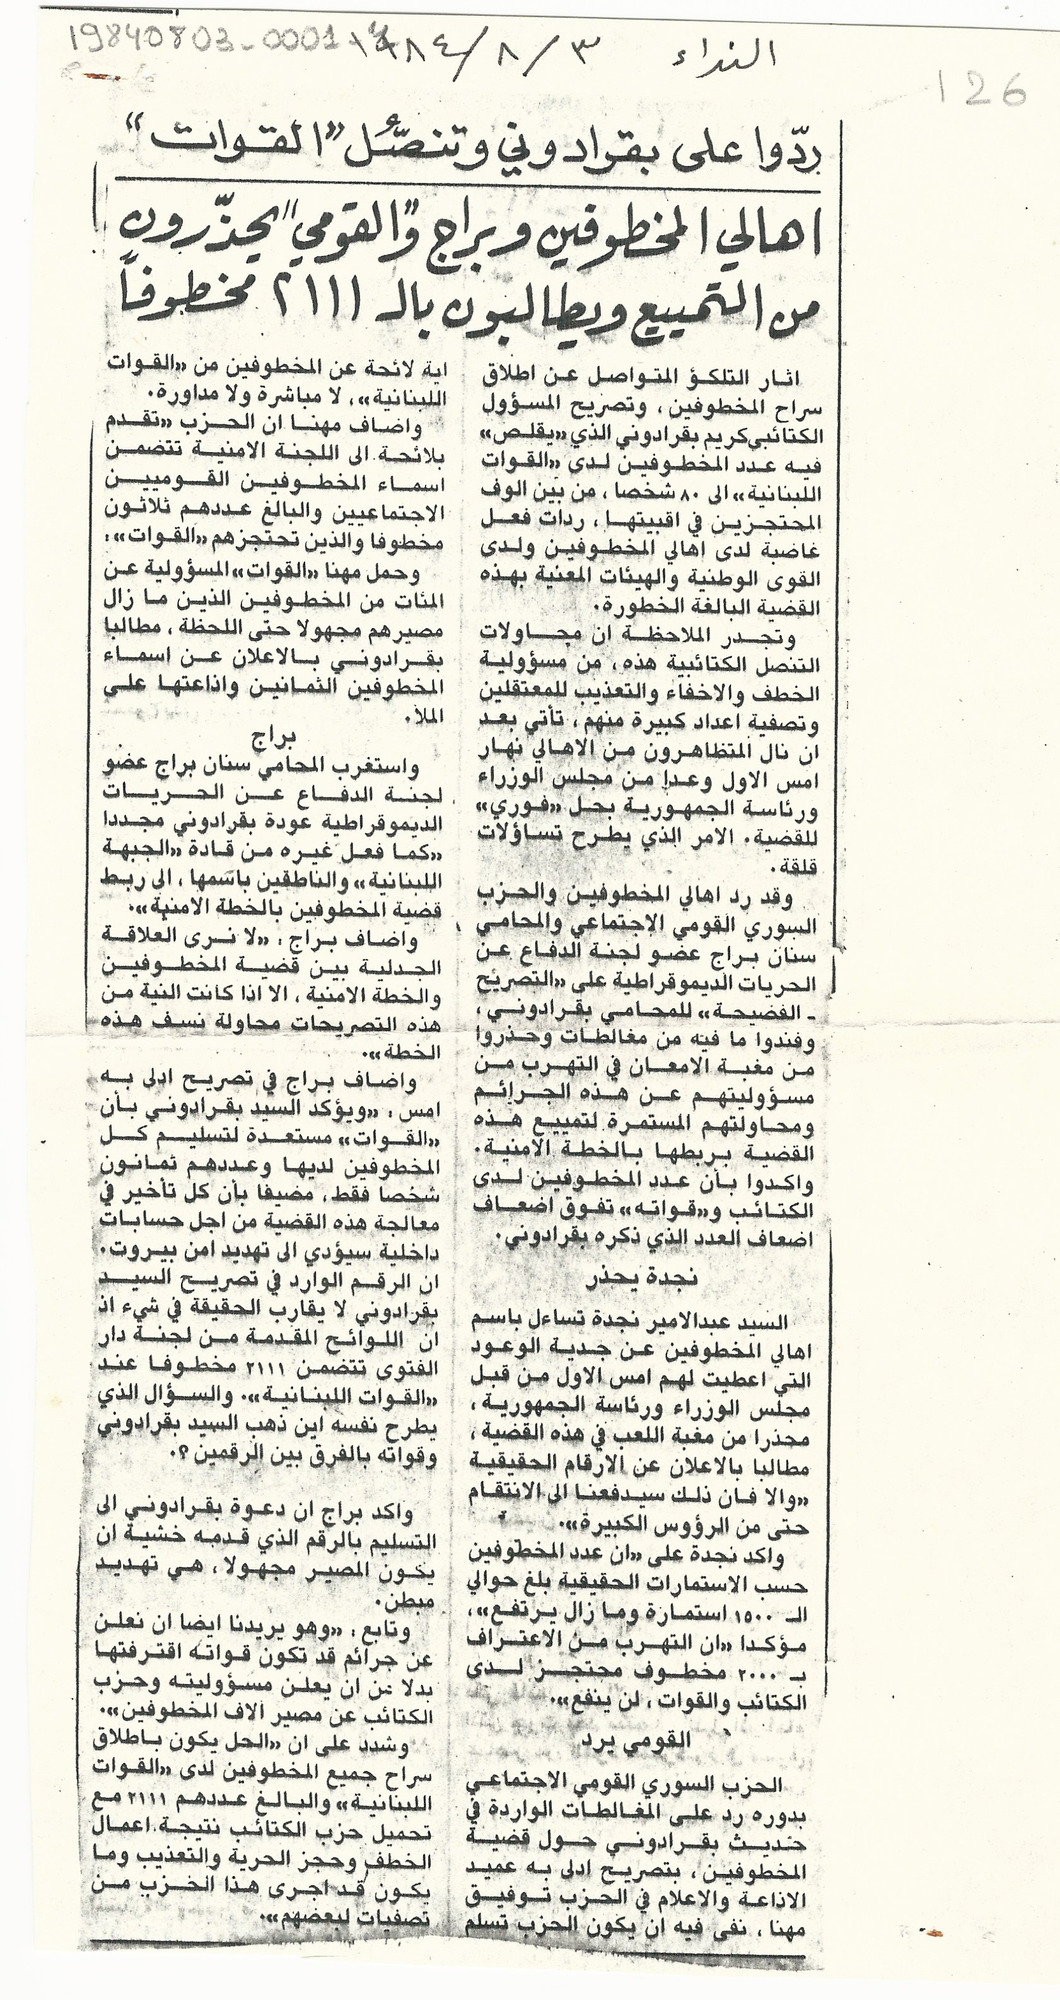 19840803-0001
النداء ٣/٨/١٩٨٤
126
ردّوا على بقرادوني وتنصّل «القوات»
اهالي المخطوفين وبراج و"القومي" يحذّرون
من التمييع ويطالبون بالـ ٢١١١ مخطوفاً
اثار التلكؤ المتواصل عن اطلاق
سراح المخطوفين، وتصريح المسؤول
الكتائبي كريم بقرادوني الذي «يقلص»
فيه عدد المخطوفين لدى «القوات
اللبنانية» الى ٨٠ شخصا، من بين الوف
المحتجزين في اقبيتها، ردات فعل
غاضبة لدى اهالي المخطوفين ولدى
القوى الوطنية والهيئات المعنية بهذه
القضية البالغة الخطورة.
وتجدر الملاحظة ان محاولات
التنصل الكتائبية هذه، من مسؤولية
الخطف والاخفاء والتعذيب للمعتقلين
وتصفية اعداد كبيرة منهم، تأتي بعد
ان نال المتظاهرون من الاهالي نهار
امس الاول وعدا من مجلس الوزراء
ورئاسة الجمهورية بحل «فوري»
للقضية. الامر الذي يطرح تساؤلات
قلقة.
وقد رد اهالي المخطوفين والحزب
السوري القومي الاجتماعي والمحامي
سنان براج عضو لجنة الدفاع عن
الحريات الديموقراطية على «التصريح
ـ الفضيحة» للمحامي بقرادوني،
وفندوا ما فيه من مغالطات وحذروا
من مغبة الامعان في التهرب من
مسؤوليتهم عن هذه الجرائم
ومحاولتهم المستمرة لتمييع هذه
القضية بربطها بالخطة الامنية.
واكدوا بأن عدد المخطوفين لدى
الكتائب و«قواته» تفوق اضعاف
اضعاف العدد الذي ذكره بقرادوني.
نجدة يحذر
السيد عبدالامير نجدة تساءل باسم
اهالي المخطوفين عن جدية الوعود
التي اعطيت لهم امس الاول من قبل
مجلس الوزراء ورئاسة الجمهورية،
محذرا من مغبة اللعب في هذه القضية،
مطالبا بالاعلان عن الارقام الحقيقية
«والا فان ذلك سيدفعنا الى الانتقام
حتى من الرؤوس الكبيرة».
واكد نجدة على «ان عدد المخطوفين
حسب الاستمارات الحقيقية بلغ حوالي
الـ ١٥٠٠ استمارة وما زال يرتفع»،
مؤكدا «ان التهرب من الاعتراف
بـ ٢٠٠٠ مخطوف محتجز لدى
الكتائب والقوات، لن ينفع».
القومي يرد
الحزب السوري القومي الاجتماعي
بدوره رد على المغالطات الواردة في
حديث بقرادوني حول قضية
المخطوفين، بتصريح ادلى به عميد
الاذاعة والاعلام في الحزب توفيق
مهنا، نفى فيه ان يكون الحزب تسلم
اية لائحة عن المخطوفين من «القوات
اللبنانية»، لا مباشرة ولا مداورة.
واضاف مهنا ان الحزب «تقدم
بلائحة الى اللجنة الامنية تتضمن
اسماء المخطوفين القوميين
الاجتماعيين والبالغ عددهم ثلاثون
مخطوفا والذين تحتجزهم «القوات»:
وحمل مهنا «القوات» المسؤولية عن
المئات من المخطوفين الذين ما زال
مصيرهم مجهولا حتى اللحظة، مطالبا
بقرادوني بالاعلان عن اسماء
المخطوفين الثمانين واذاعتها على
الملأ.
براج
واستغرب المحامي سنان براج عضو
لجنة الدفاع عن الحريات
الديموقراطية عودة بقرادوني مجددا
«كما فعل غيره من قادة «الجبهة
اللبنانية» والناطقين باسمها، الى ربط
قضية المخطوفين بالخطة الامنية».
واضاف براج: «لا نرى العلاقة
الجدلية بين قضية المخطوفين
والخطة الامنية، الا اذا كانت النية من
هذه التصريحات محاولة نسف هذه
الخطة».
واضاف براج في تصريح ادلى به
امس: «ويؤكد السيد بقرادوني بأن
«القوات» مستعدة لتسليم كل
المخطوفين لديها وعددهم ثمانون
شخصا فقط، مضيفا بأن كل تأخير في
معالجة هذه القضية من اجل حسابات
داخلية سيؤدي الى تهديد امن بيروت.
ان الرقم الوارد في تصريح السيد
بقرادوني لا يقارب الحقيقة في شيء اذ
ان اللوائح المقدمة من لجنة دار
الفتوى تتضمن ٢١١١ مخطوفا عند
«القوات اللبنانية». والسؤال الذي
يطرح نفسه اين ذهب السيد بقرادوني
وقواته بالفرق بين الرقمين؟.
واكد براج ان دعوة بقرادوني الى
التسليم بالرقم الذي قدمه خشية ان
يكون المصير مجهولا، هي تهديد
مبطن.
وتابع: «وهو يريدنا ايضا ان نعلن
عن جرائم قد تكون قواته اقترفتها
بدلا من ان يعلن مسؤوليته وحزب
الكتائب عن مصير آلاف المخطوفين».
وشدد على ان «الحل يكون باطلاق
سراح جميع المخطوفين لدى «القوات
اللبنانية» والبالغ عددهم ٢١١١ مع
تحميل حزب الكتائب نتيجة اعمال
الخطف وحجز الحرية والتعذيب وما
يكون قد اجرى هذا الحزب من
تصفيات لبعضهم».